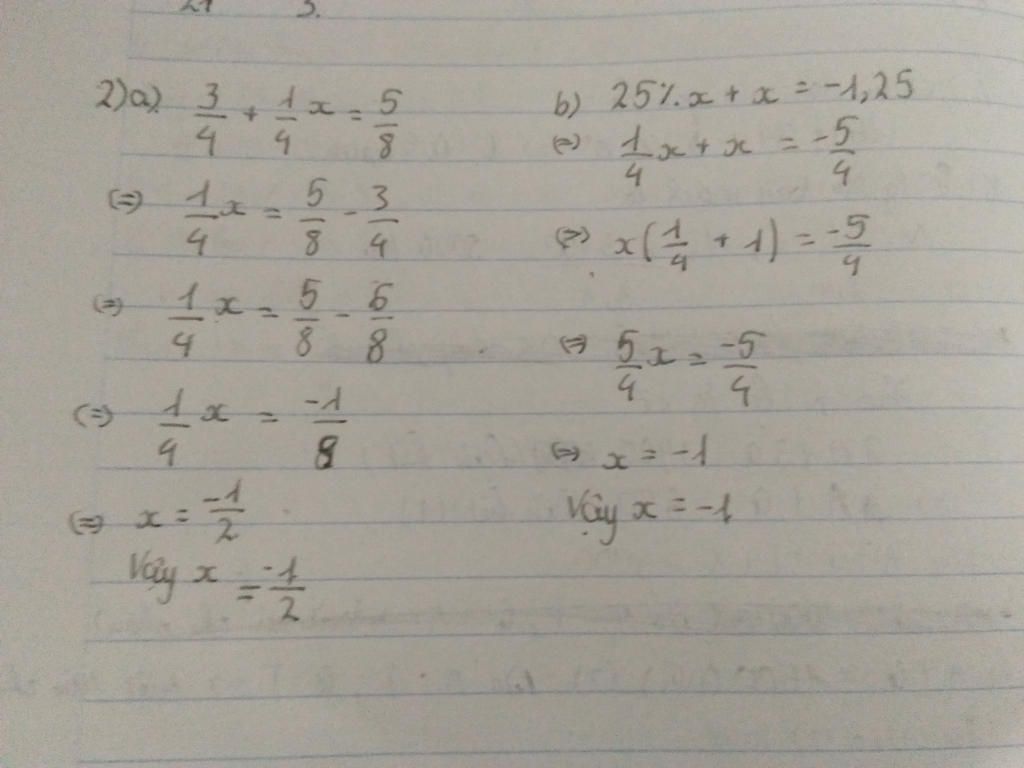 2)a) 3/4 + 1/4 x = 5/8
(=) 1/4 x = 5/8 - 3/4
(=) 1/4 x = 5/8 - 6/8
(=) 1/4 x = -1/8
(=) x = -1/2
Vậy x = -1/2
b) 25% x + x = -1,25
(=) 1/4 x + x = -5/4
(=) x(1/4 + 1) = -5/4
(=) 5/4 x = -5/4
(=) x = -1
Vậy x = -1